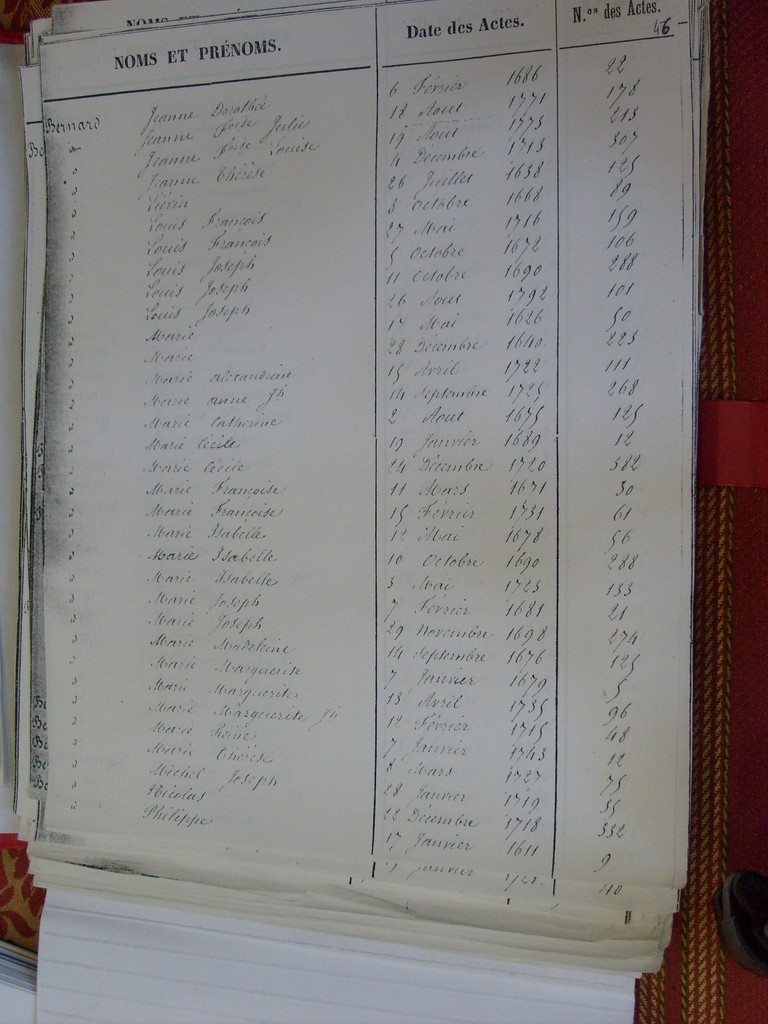 NOMS ET PRÉNOMS. Date des Actes. N.os des Actes.
46
Bernard Jeanne Dorothée 6 Février 1686 22
" Jeanne Joise Julie 18 Aout 1771 178
" Jeanne Joise Louise 19 Aout 1773 213
" Jeanne Thérèse 4 Décembre 1713 307
" Liévin 26 Juillet 1638 125
" Louis François 3 Octobre 1668 89
" Louis François 27 Mai 1716 159
" Louis Joseph 5 Octobre 1672 106
" Louis Joseph 11 Octobre 1690 288
" Louis Joseph 26 Aout 1792 101
" Marie 17 Mai 1626 50
" Marie 28 Décembre 1640 223
" Marie alexandrine 15 Avril 1722 111
" Marie anne Jh 14 Septembre 1725 268
" Marie Catherine 2 Aout 1675 125
" Marie Cécile 19 Janvier 1689 12
" Marie Cécile 24 Décembre 1720 382
" Marie Françoise 11 Mars 1671 30
" Marie Françoise 15 Février 1731 61
" Marie Isabelle 12 Mai 1678 56
" Marie Isabelle 10 Octobre 1690 288
" Marie Isabelle 3 Mai 1723 133
" Marie Joseph 7 Février 1681 21
" Marie Joseph 29 Novembre 1698 274
" Marie Madeleine 14 Septembre 1676 125
" Marie Marguerite 7 Janvier 1679 5
" Marie Marguerite 13 Avril 1735 96
" Marie Marguerite Jh 12 Février 1715 48
" Marie Reine 7 Janvier 1743 12
" Marie Thérèse 8 Mars 1727 75
" Michel Joseph 28 Janvier 1719 35
" Nicolas 22 Décembre 1718 332
" Philippe 17 Janvier 1611 9
janvier 40